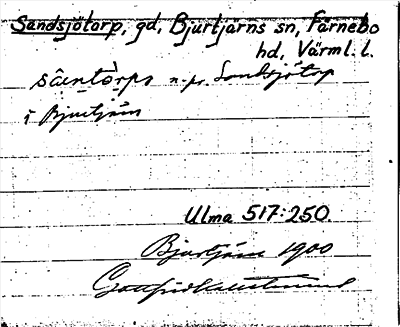 Sandsjötorp, gd, Bjurtjärns sn, Färnebo
hd, Värml. l.
såntòrps n. pr. Sandsjötorp
i Bjurtjärn
Ulma 517:250.
Bjurtjärn 1900
Gottfrid Kallstenius